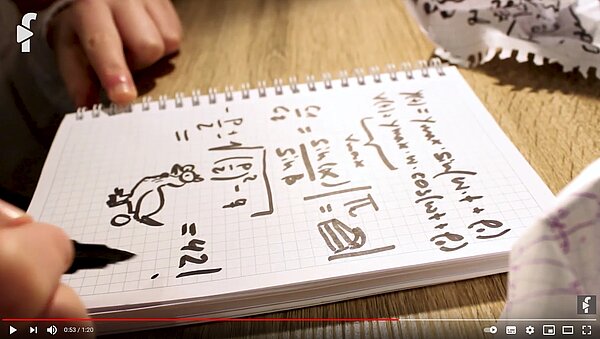 y(t) = ymax sin(ω·t + φ₀)
v(t) = ymax·ω·cos(ωt + φ₀)
vmax
c₁/c₂ = sin(α)/sin β
π =
-p/2 ± √((p/2)² - q)
= 42!
0:53 / 1:20